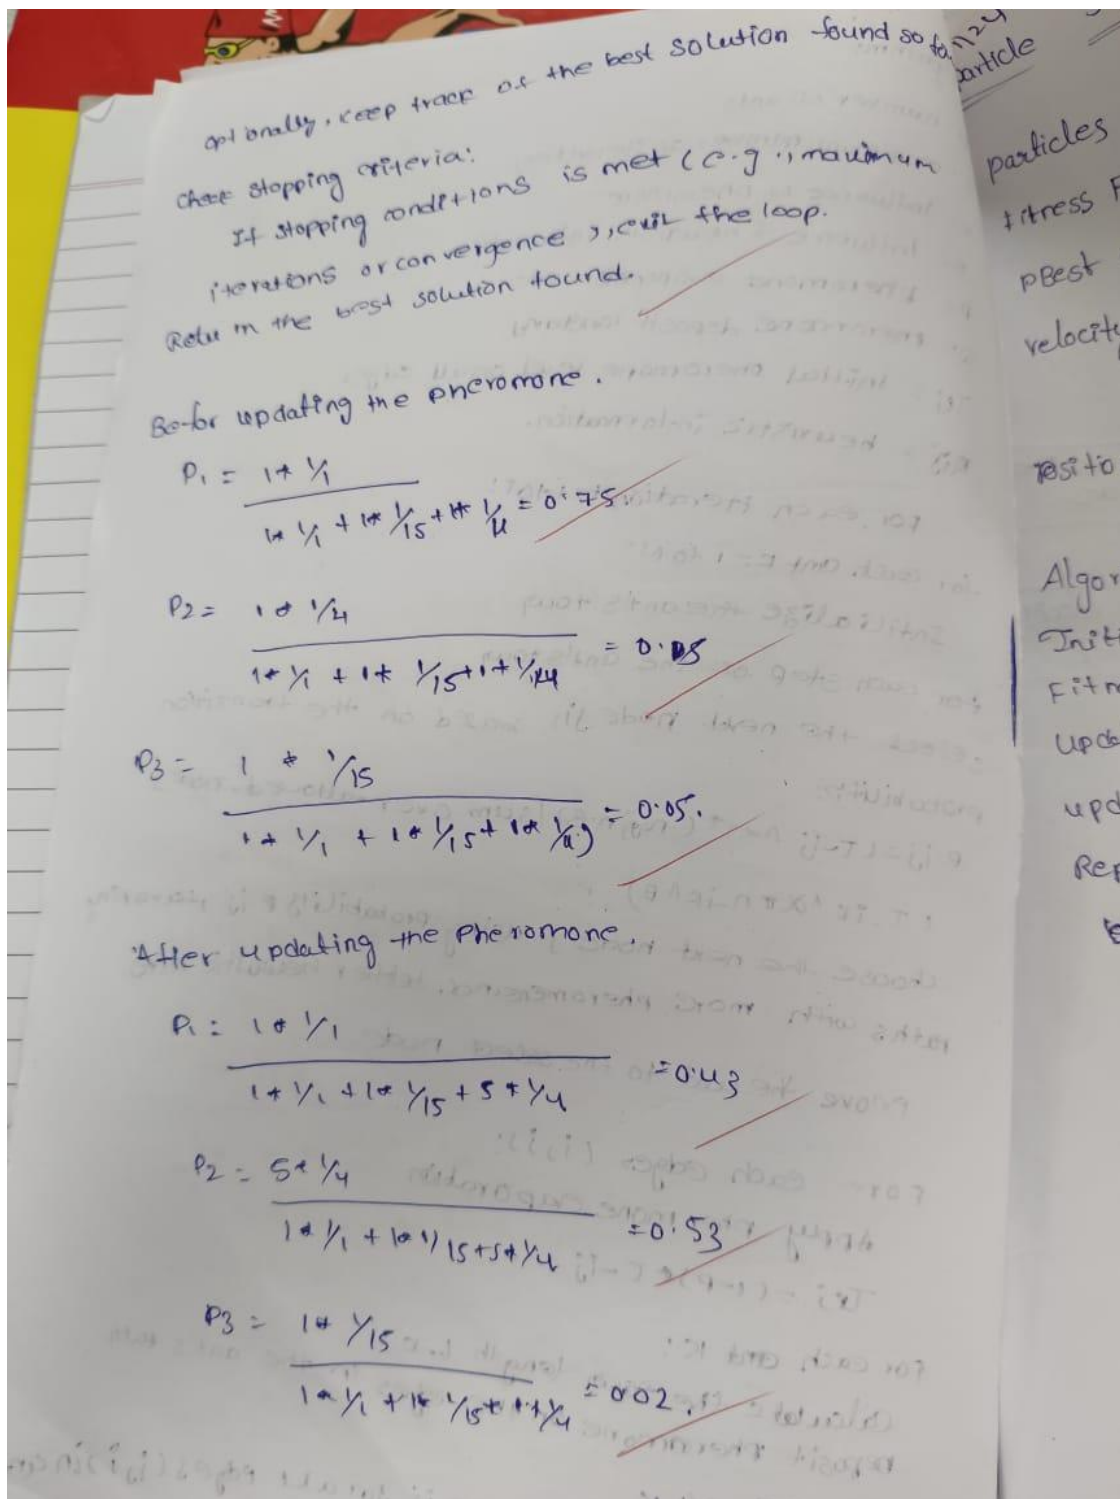 optionally, keep track of the best solution found so fa
Check stopping criteria:
If stopping conditions is met (e.g., maximum
iterations or convergence), exit the loop.
Return the best solution found.
Befor updating the pheromone.
P1 = 1* 1/1
1* 1/1 + 1* 1/15 + 1* 1/4 = 0.75.
P2 = 1 * 1/4
1* 1/1 + 1* 1/15 + 1 + 1/4 =
P3 = 1 * 1/15
1* 1/1 + 1* 1/15 + 1* 1/4) = 0.05.
After updating the pheromone.
P1 = 1* 1/1
1* 1/1 + 1* 1/15 + 5* 1/4 = 0.43
P2 = 5* 1/4
1* 1/1 + 1* 1/15 + 5* 1/4 = 0.53
P3 = 1* 1/15
1* 1/1 + 1* 1/15 + 1* 1/4 = 0.02.
particle
particles
fitness F
pBest
velocity
Algor
Initi
Fitn
upda
upd
Rep